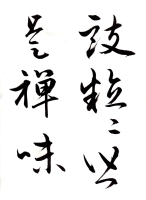 豉粒々皆
是禪味